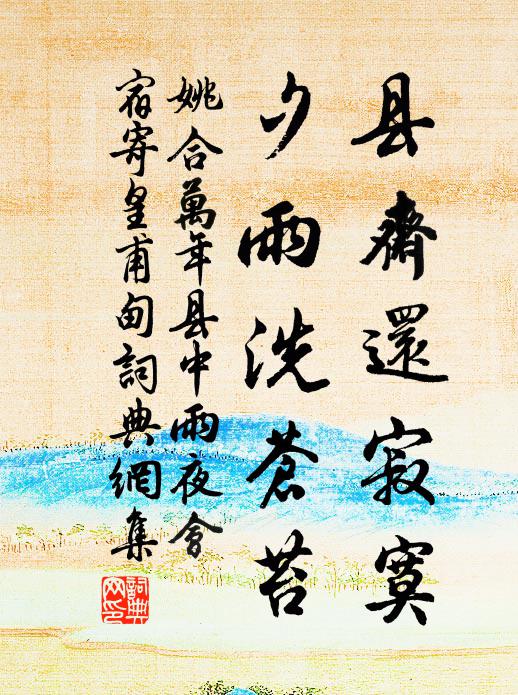 县齊還寂寞
夕雨洗蒼苔
姚合萬年县中雨夜會
宿寄皇甫甸詞典網集
詞典网印